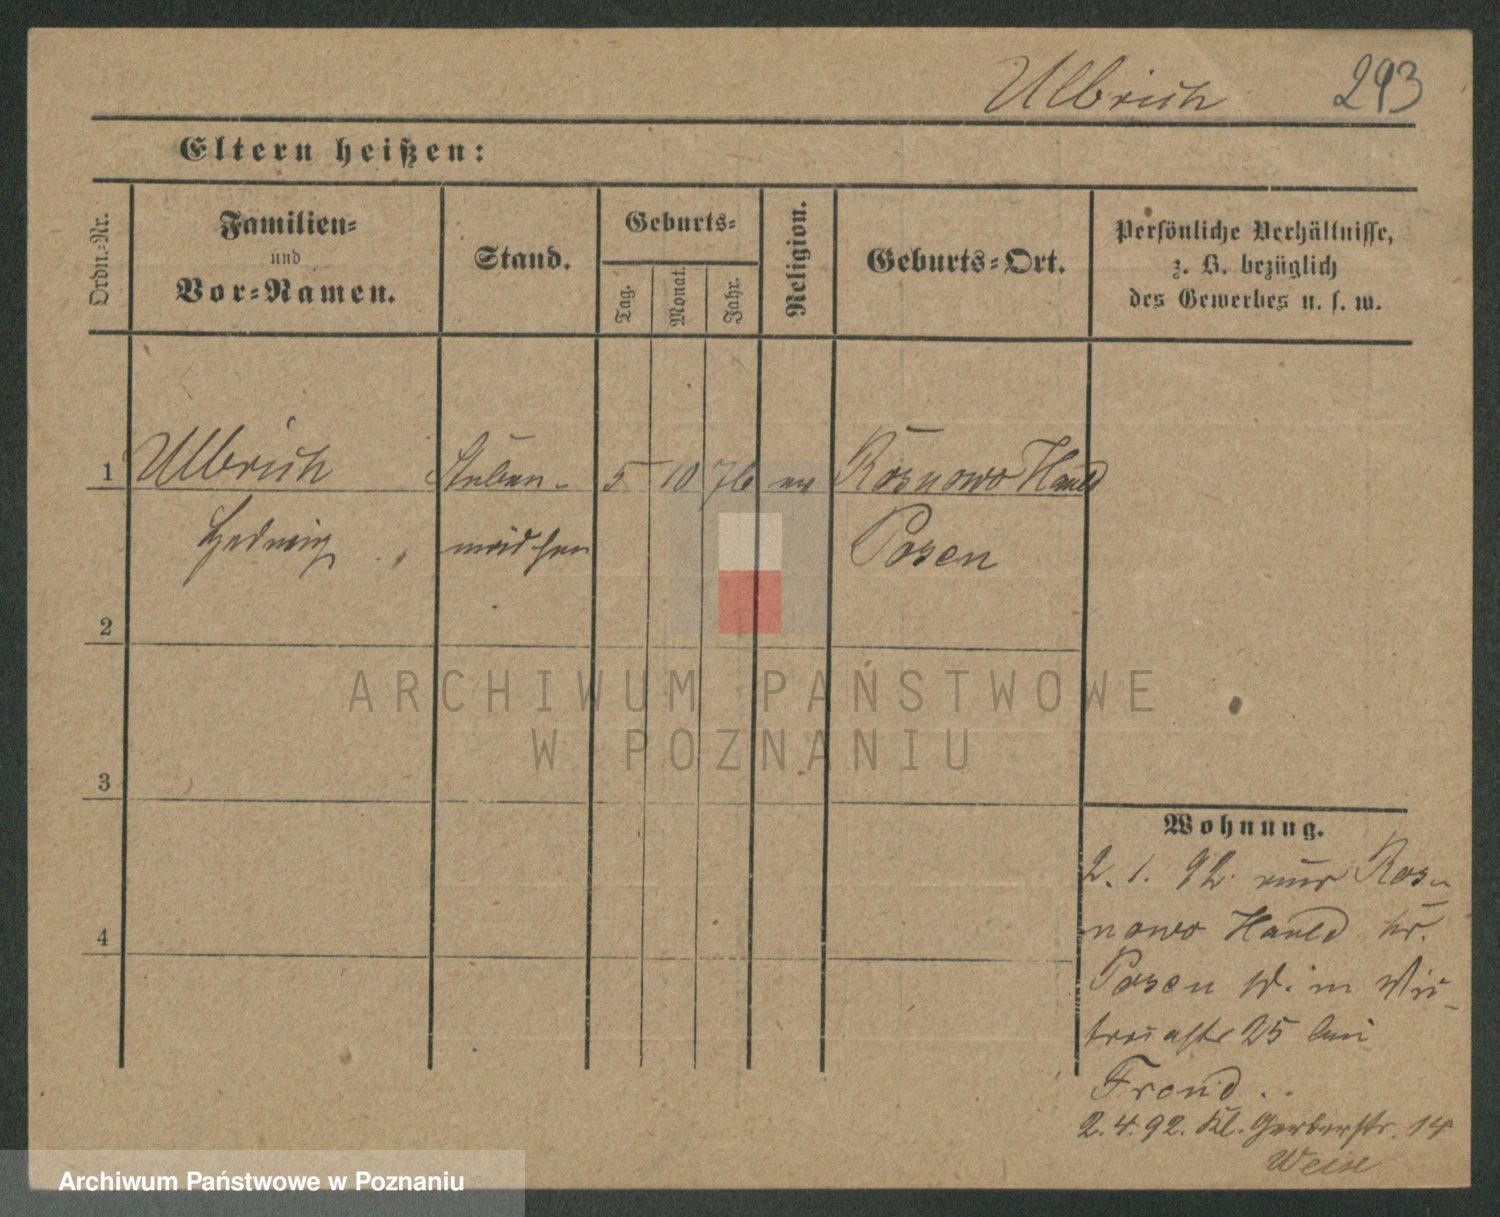 Ulbrich 293
Eltern heißen:
Ordn.-Nr.
Familien-
und
Vor-Namen.
Stand.
Geburts-
Tag.
Monat.
Jahr.
Religion.
Geburts-Ort.
Persönliche Verhältnisse,
z. B. bezüglich
des Gewerbes u. s. w.
1 Ulbrich Stuben- 5 10 76 ev Rosnowo Hauld
Hedwig mädchen Posen
2
3
4
Wohnung.
2. 1. 92 aus Ros-
nowo Hauld kr.
Posen W. in
25 bei
2. 4. 92. Kl. Gerberstr. 14
ARCHIWUM PAŃSTWOWE
W POZNANIU
Archiwum Państwowe w Poznaniu